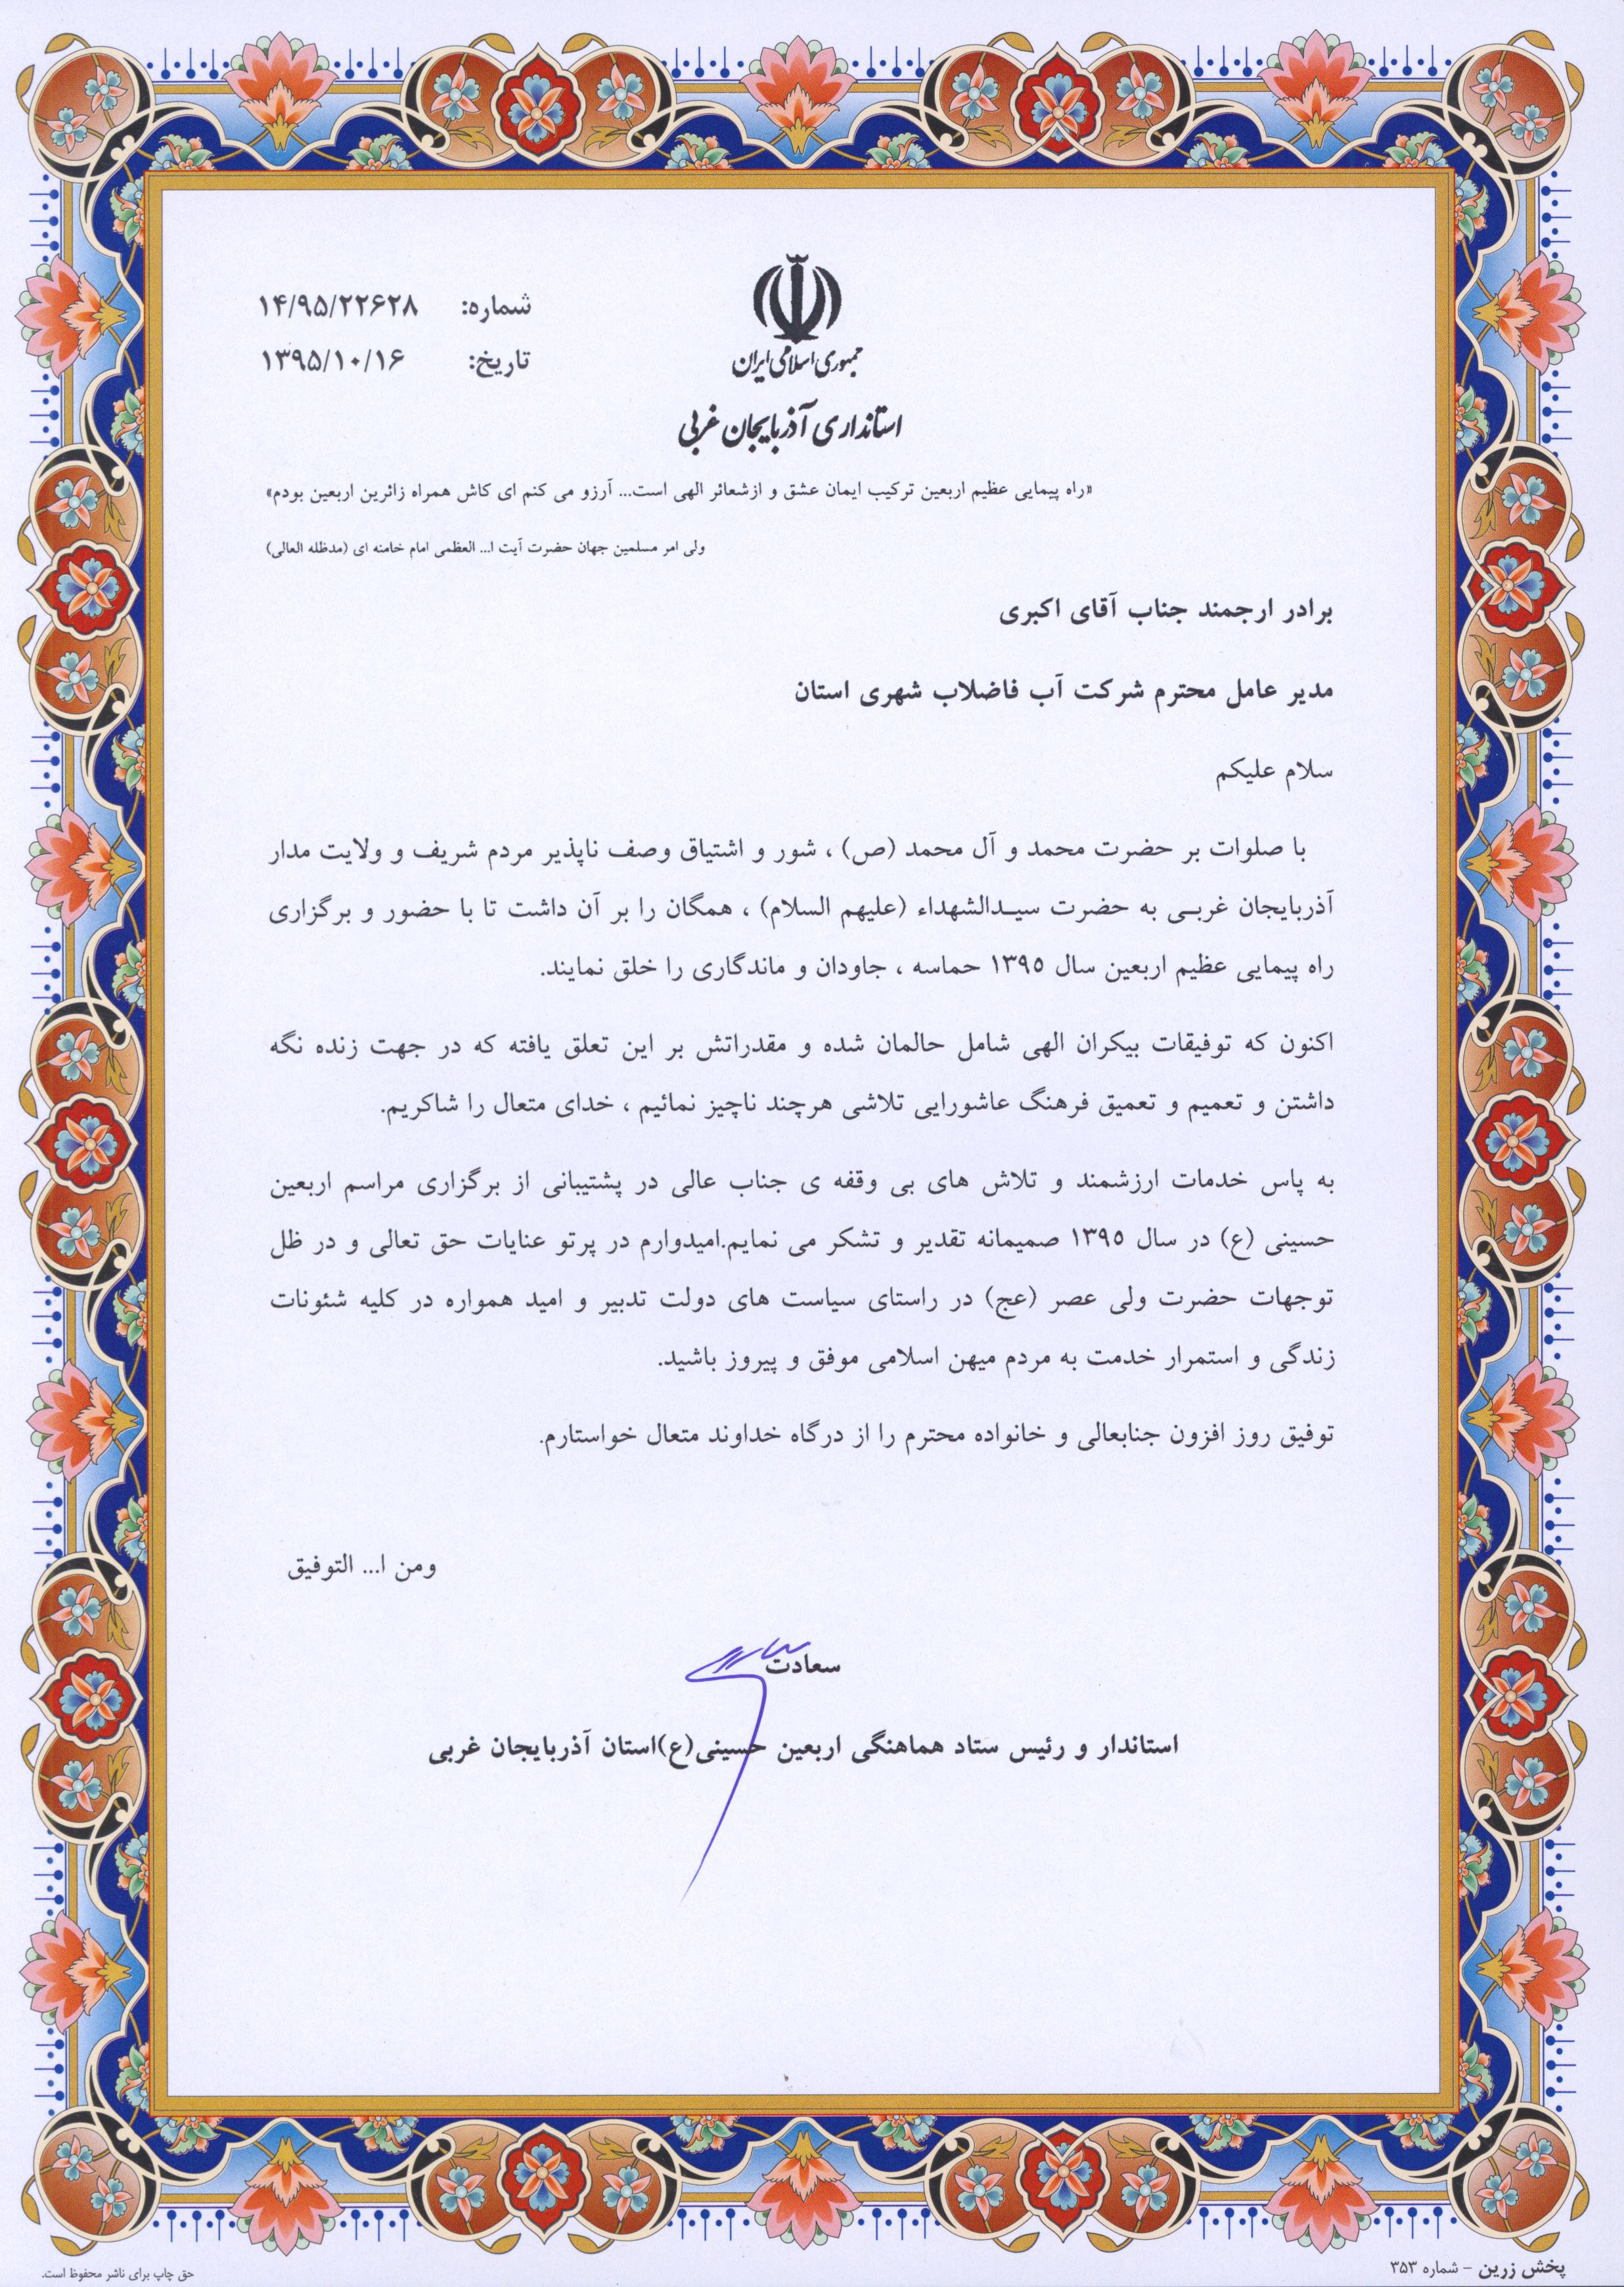 جمهوری اسلامی ایران
استانداری آذربایجان غربی
شماره: ۱۴/۹۵/۲۲۶۲۸
تاریخ: ۱۳۹۵/۱۰/۱۶
«راه پیمایی عظیم اربعین ترکیب ایمان عشق و ازشعائر الهی است... آرزو می کنم ای کاش همراه زائرین اربعین بودم»
ولی امر مسلمین جهان حضرت آیت ا... العظمی امام خامنه ای (مدظله العالی)
برادر ارجمند جناب آقای اکبری
مدیر عامل محترم شرکت آب فاضلاب شهری استان
سلام علیکم
با صلوات بر حضرت محمد و آل محمد (ص) ، شور و اشتیاق وصف ناپذیر مردم شریف و ولایت مدار
آذربایجان غربـی به حضرت سیـدالشهداء (علیهم السلام) ، همگان را بر آن داشت تا با حضور و برگزاری
راه پیمایی عظیم اربعین سال ۱۳۹۵ حماسه ، جاودان و ماندگاری را خلق نمایند.
اکنون که توفیقات بیکران الهی شامل حالمان شده و مقدراتش بر این تعلق یافته که در جهت زنده نگه
داشتن و تعمیم و تعمیق فرهنگ عاشورایی تلاشی هرچند ناچیز نمائیم ، خدای متعال را شاکریم.
به پاس خدمات ارزشمند و تلاش های بی وقفه ی جناب عالی در پشتیبانی از برگزاری مراسم اربعین
حسینی (ع) در سال ۱۳۹۵ صمیمانه تقدیر و تشکر می نمایم.امیدوارم در پرتو عنایات حق تعالی و در ظل
توجهات حضرت ولی عصر (عج) در راستای سیاست های دولت تدبیر و امید همواره در کلیه شئونات
زندگی و استمرار خدمت به مردم میهن اسلامی موفق و پیروز باشید.
توفیق روز افزون جنابعالی و خانواده محترم را از درگاه خداوند متعال خواستارم.
ومن ا... التوفیق
سعادت
استاندار و رئیس ستاد هماهنگی اربعین حسینی(ع)استان آذربایجان غربی
پخش زرین - شماره ۳۵۳
حق چاپ برای ناشر محفوظ است.